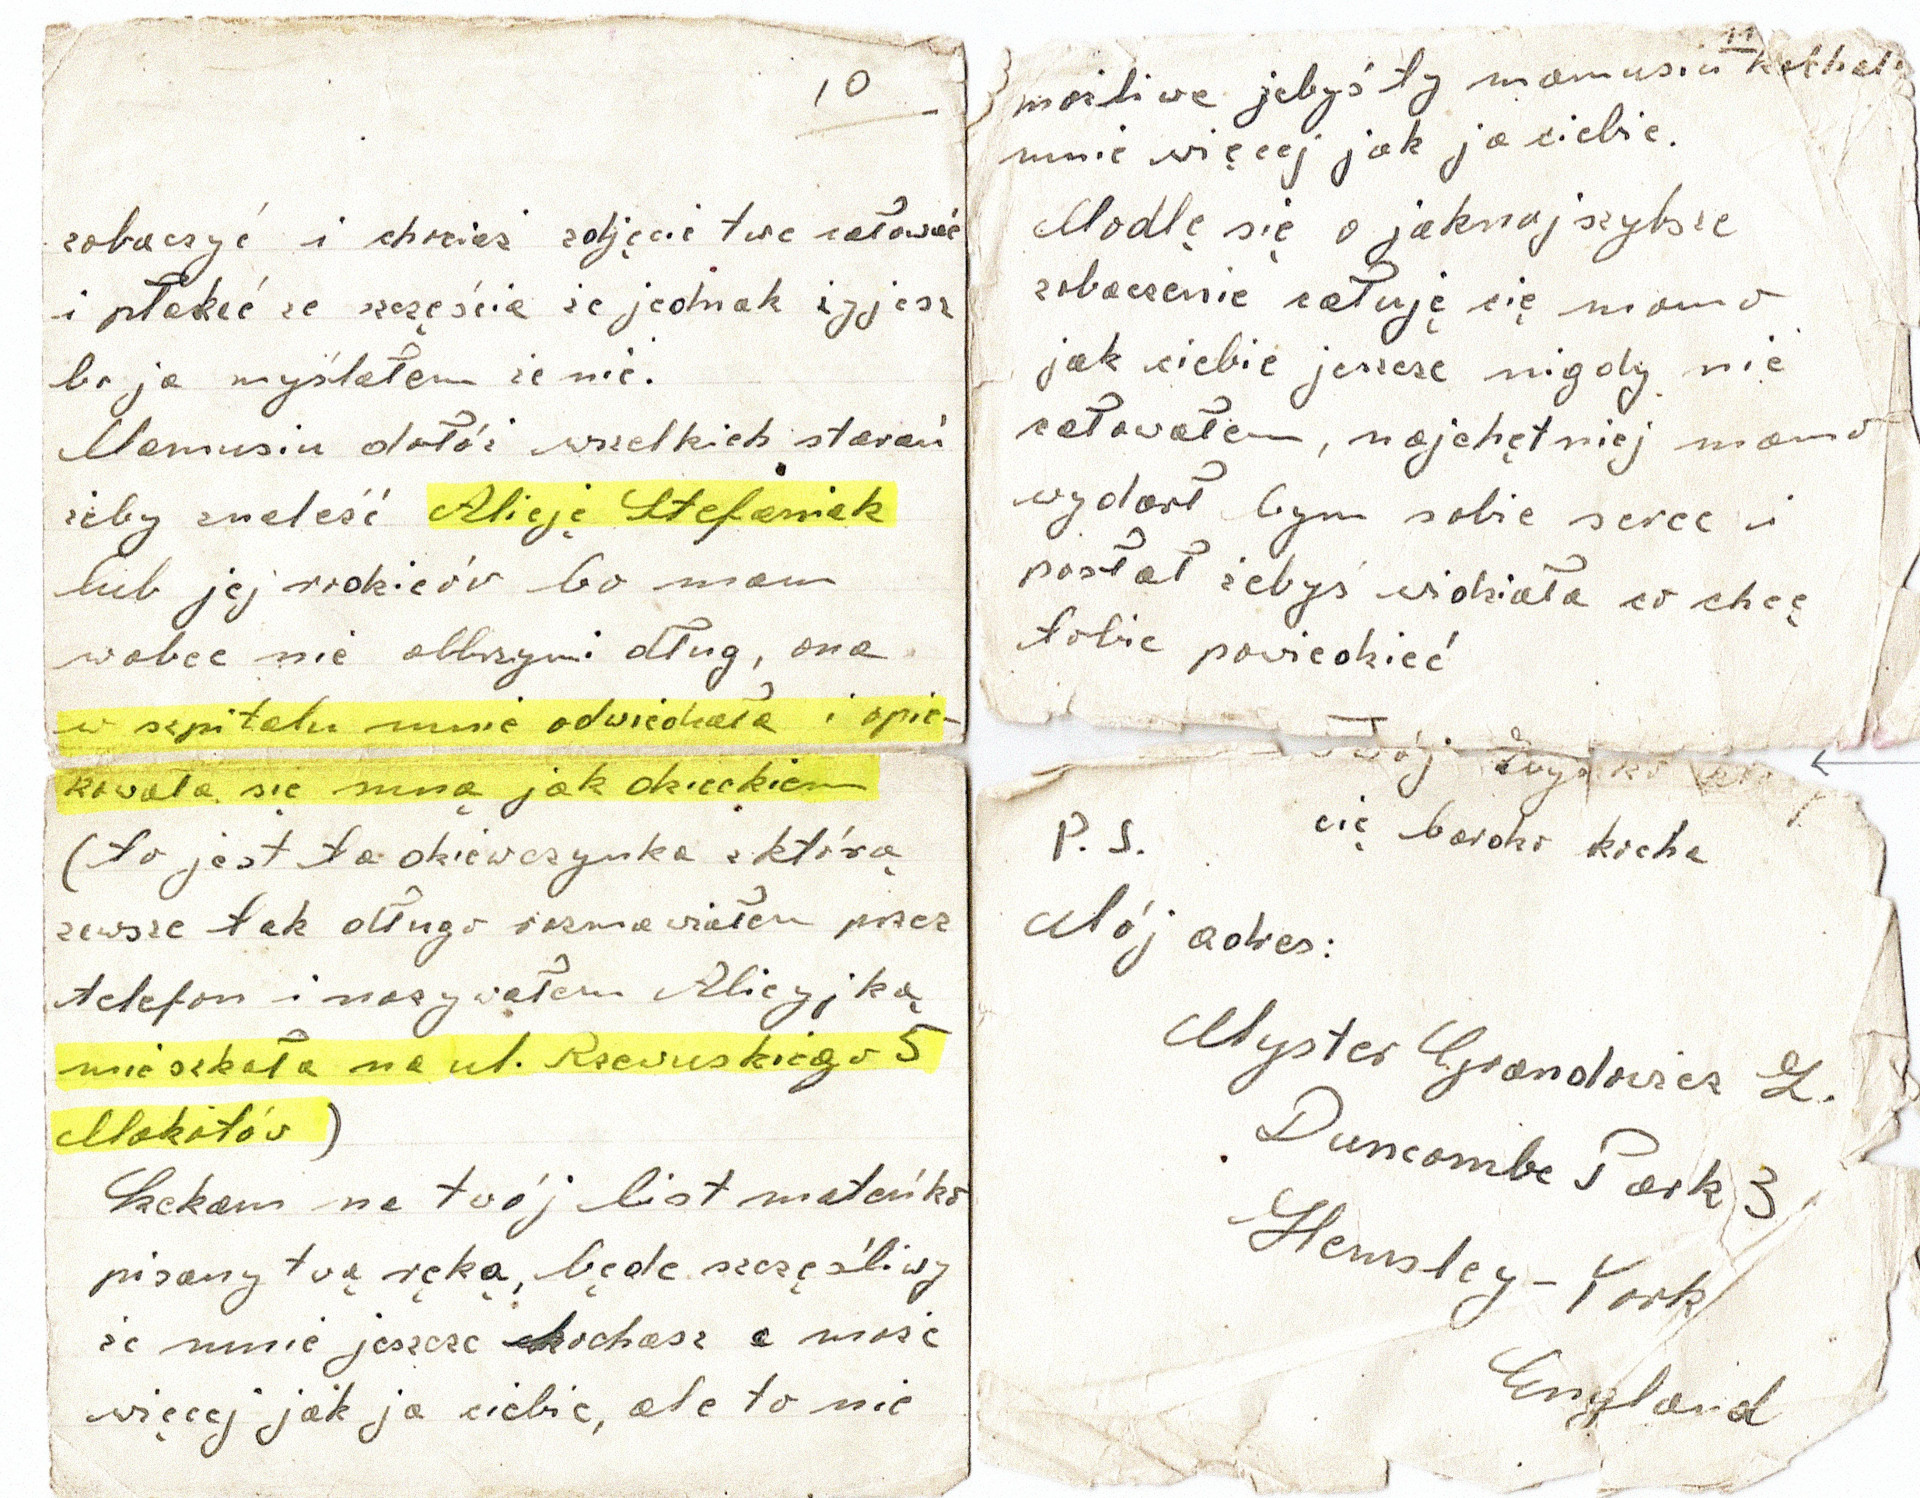 10
zobaczyć i chociaż zdjęcie twe całować
i płakać ze szczęścia że jednak żyjesz
bo ja myślałem że nie.
Mamusiu dołóż wszelkich starań
żeby znaleść Alicję Stefaniak
lub jej rodziców bo mam
wobec nie olbrzymi dług, ona
w szpitalu mnie odwiedzała i opie-
kowała się mną jak dzieckiem
(to jest ta dziewczynka z którą
zawsze tak długo rozmawiałem przez
telefon i nazywałem Alicyjką
mieszkała na ul. Rzewuskiego 5
Mokotów)
Czekam na twój list mateńko
pisany twą ręką, będe szczęśliwy
że mnie jeszcze kochasz a może
więcej jak ja ciebie, ale to nie
11
możliwe żebyś ty mamusiu kochała
mnie więcej jak ja ciebie.
Modlę się o jaknajszybsze
zobaczenie całuję cię mamo
jak ciebie jeszcze nigdy nie
całowałem, najchętniej mamo
wydarł bym sobie serce i
posłał żebyś widziała co chcę
tobie powiedzieć
Twój
cię bardzo kocha
P.S.
Mój adres:
Myster Grandowicz Z.
Duncombe Park 3
Hemsley - York
England